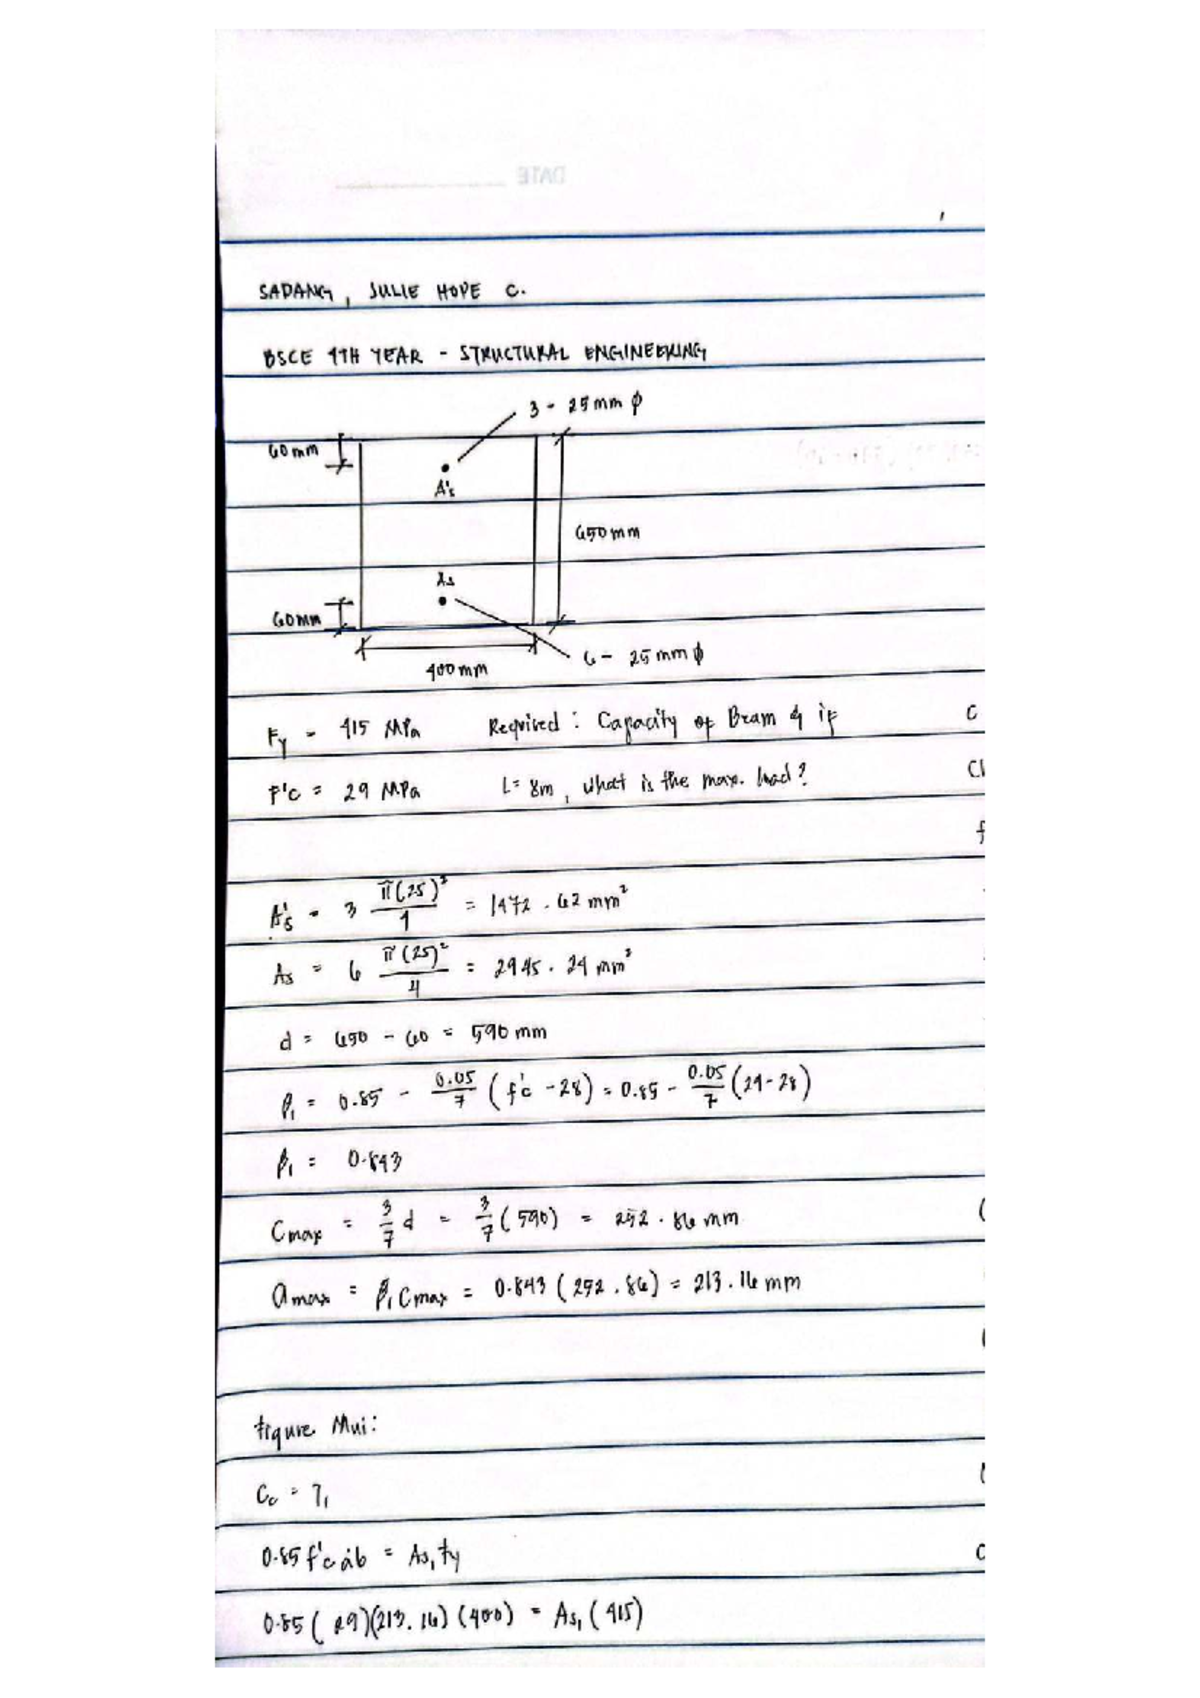 DATE
SADANG, JULIE HOPE C.
BSCE 4TH YEAR - STRUCTURAL ENGINEERING
3 - 25 mm ϕ
60 mm
A's
650 mm
As
60 mm
6 - 25 mm ϕ
400 mm
Fy = 415 MPa Required : Capacity of Beam & if
F'c = 29 MPa L = 8m, what is the max. load?
A's = 3 π(25)²/4 = 1472.62 mm²
As = 6 π(25)²/4 = 2945.24 mm²
d = 650 - 60 = 590 mm
β₁ = 0.85 - 0.05/7 (f'c - 28) = 0.85 - 0.05/7 (29-28)
β₁ = 0.843
Cmax = 3/7 d = 3/7 (590) = 252.86 mm
amax = β₁Cmax = 0.843 (252.86) = 213.16 mm
figure Mui:
Cc = T₁
0.85 f'c ab = As₁ fy
0.85 (29)(213.16)(400) = As₁ (415)